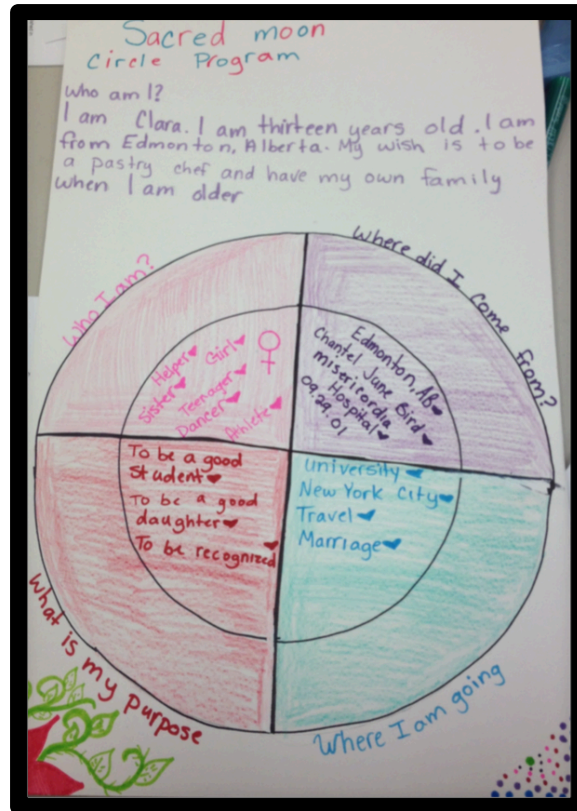 Sacred moon
Circle Program
Who am I?
I am Clara. I am thirteen years old. I am
from Edmonton, Alberta. My wish is to be
a pastry chef and have my own family
when I am older
Who I am?
Helper
Girl
Sister
Teenager
Dancer
Athlete
Where did I come from?
Edmonton, AB
Chantel June Bird
misericordia
Hospital
09.29.01
To be a good
Student
To be a good
daughter
To be recognized
What is my purpose
University
New York City
Travel
Marriage
Where I am going